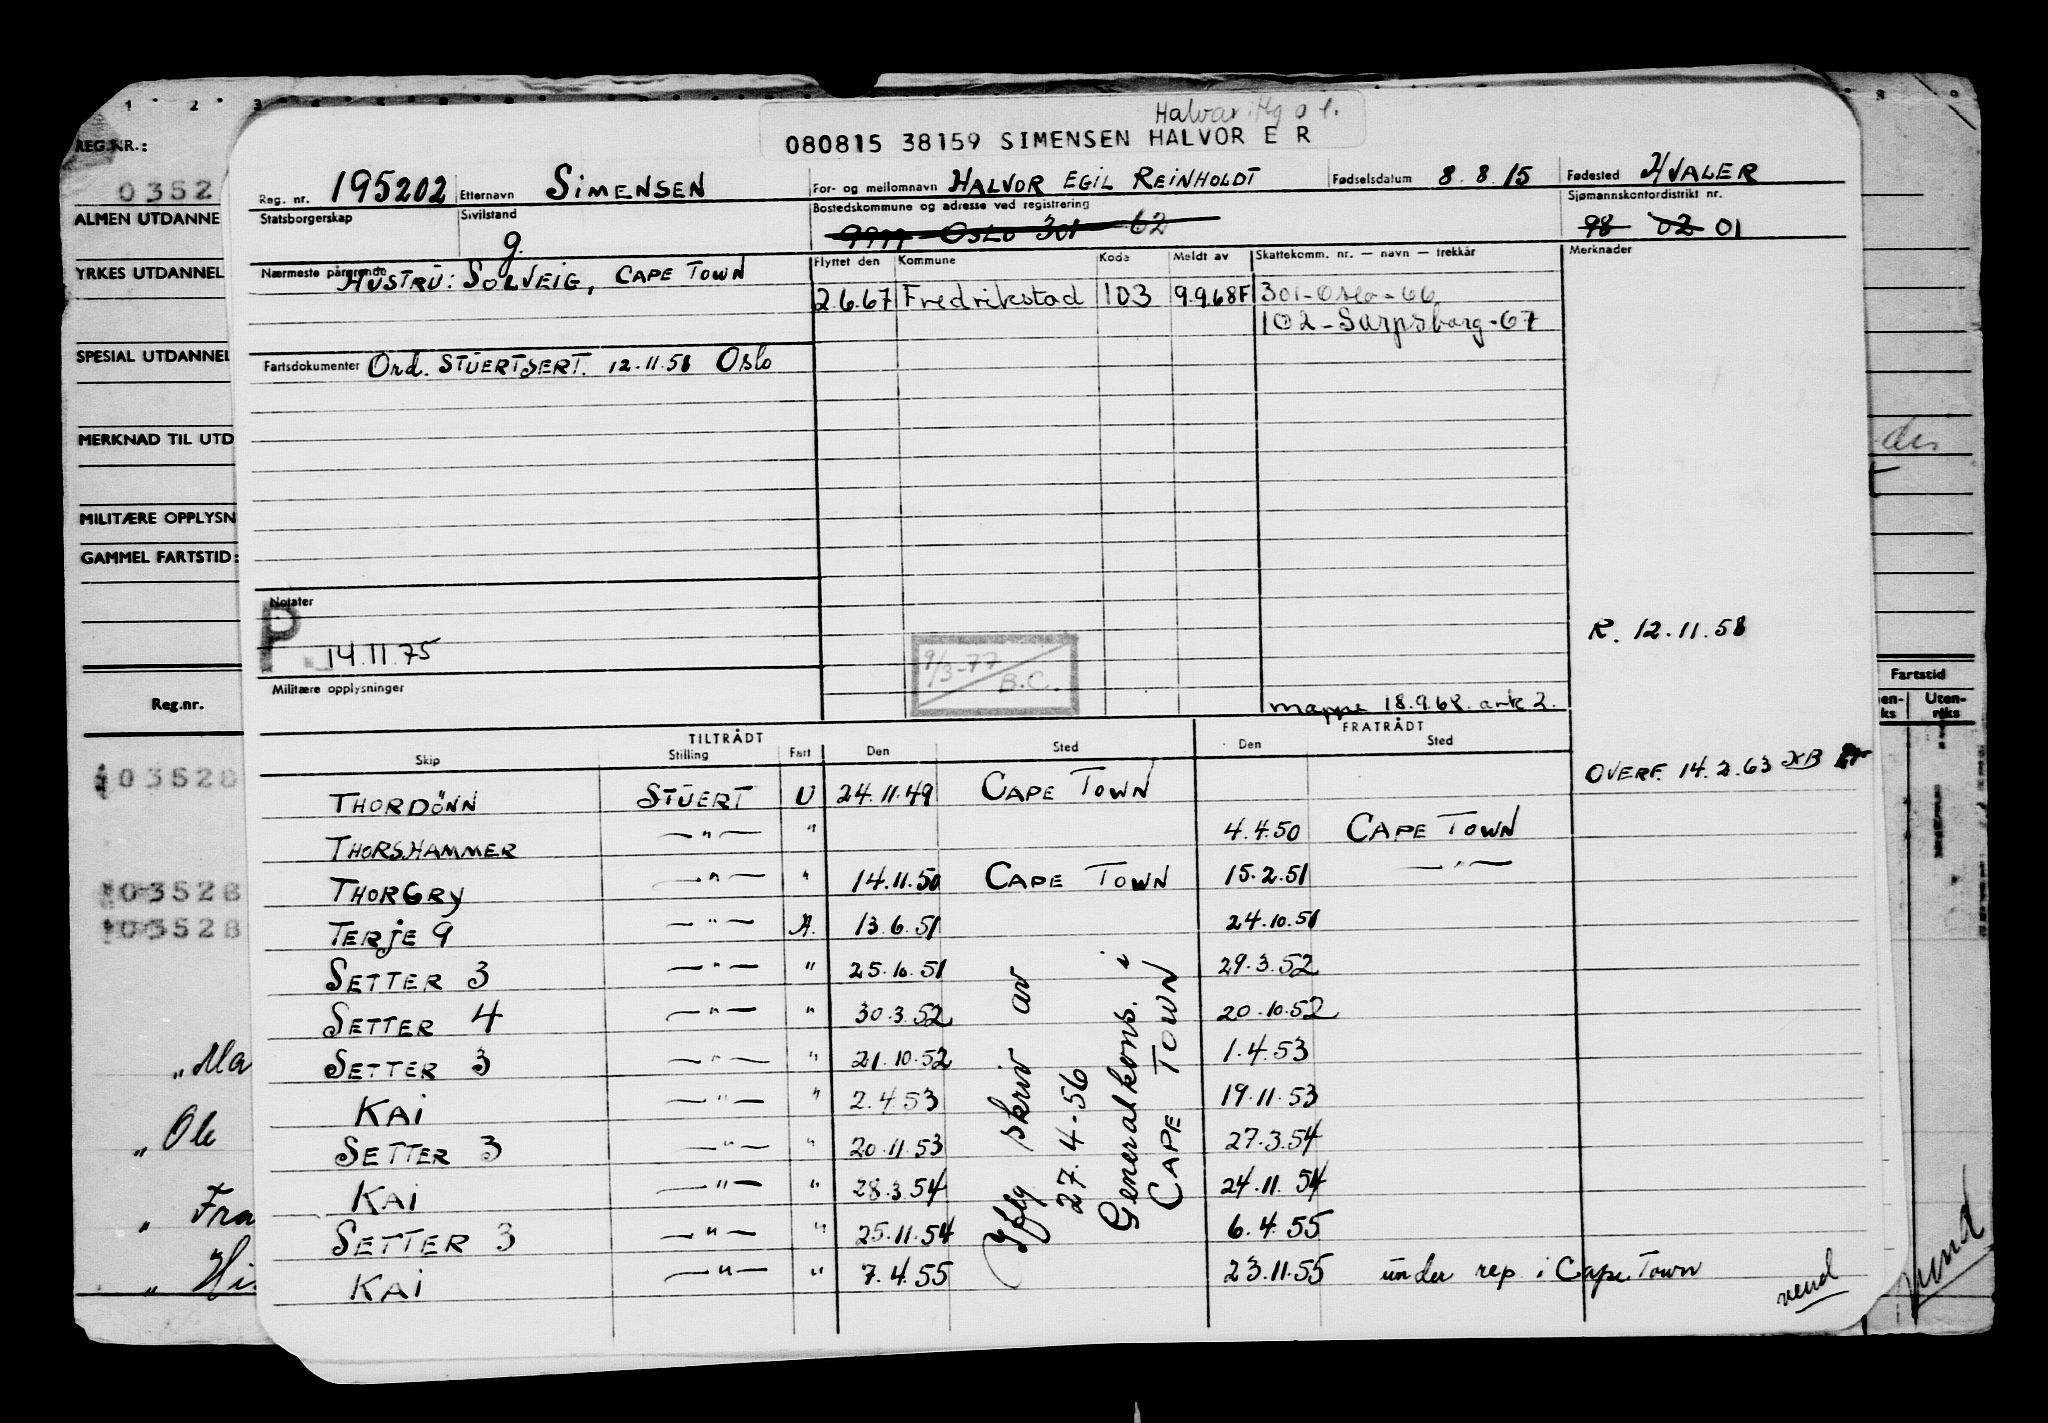 1 2 3
Halvar
080815 38159 SIMENSEN HALVOR E R
REG.NR.:
0352
ALMEN UTDANNE
YRKES UTDANNEL
SPESIAL UTDANNEL
MERKNAD TIL UTD
MILITÆRE OPPLYSN
GAMMEL FARTSTID:
Reg.nr.
03528
03528
03528
„ Ma
„ Ole
„ Fra
„ Hi
Reg. nr. 195202 Etternavn SIMENSEN For- og mellomnavn HALVOR EGIL REINHOLDT Fødselsdatum 8.8.15 Fødested HVALER
Statsborgerskap Sivilstand g. Bostedskommune og adresse ved registrering Oslo 301 62 Sjømannskontordistrikt nr. 98 02 01
Nærmeste pårørende HUSTRU: SOLVEIG, CAPE TOWN Flyttet den Kommune Kode Meldt av Skattekomm. nr. — navn — trekkår Merknader
2.6.67 Fredrikstad 103 9.9.68F 301-Oslo-66
102-Sarpsborg-67
Fartsdokumenter Ord. STUERTSERT. 12.11.58 Oslo
Notater
P. 14.11.75
R. 12.11.58
9/3-77 B.C.
Militære opplysninger
mappe 18.9.68. ark 2.
TILTRÅDT FRATRÅDT
Skip Stilling Fart Den Sted Den Sted
OVERF. 14.2.63 KB
THORDÖNN STUERT U 24.11.49 CAPE TOWN
THORSHAMMER —"— " 4.4.50 CAPE TOWN
THORGRY —"— " 14.11.50 CAPE TOWN 15.2.51 —"—
TERJE 9 —"— A. 13.6.51 24.10.51
SETTER 3 —"— " 25.10.51 29.3.52
SETTER 4 —"— " 30.3.52 20.10.52
SETTER 3 —"— " 21.10.52 1.4.53
KAI —"— " 2.4.53 19.11.53
SETTER 3 —"— " 20.11.53 27.3.54
KAI —"— " 28.3.54 24.11.54
SETTER 3 —"— " 25.11.54 6.4.55
KAI —"— " 7.4.55 23.11.55 under rep i Cape Town
Iflg skriv av
27.4-56
Generalkons. i
CAPE TOWN
vend
Fartstid
en-ks Uten-riks
vend